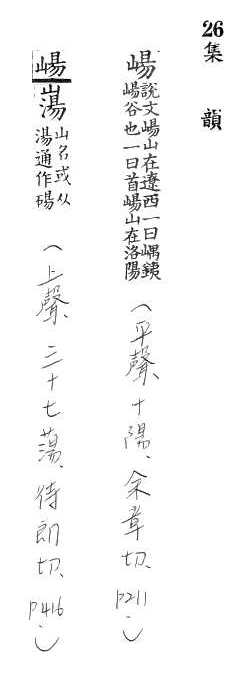 26集 韻
崵 說文崵山在遼西一曰嵎銕
崵谷也一曰首崵山在洛陽
（平聲、十陽、余章切、p211.）
崵
山名或从
湯通作碭
（上聲、三十七蕩、待朗切、p416.）